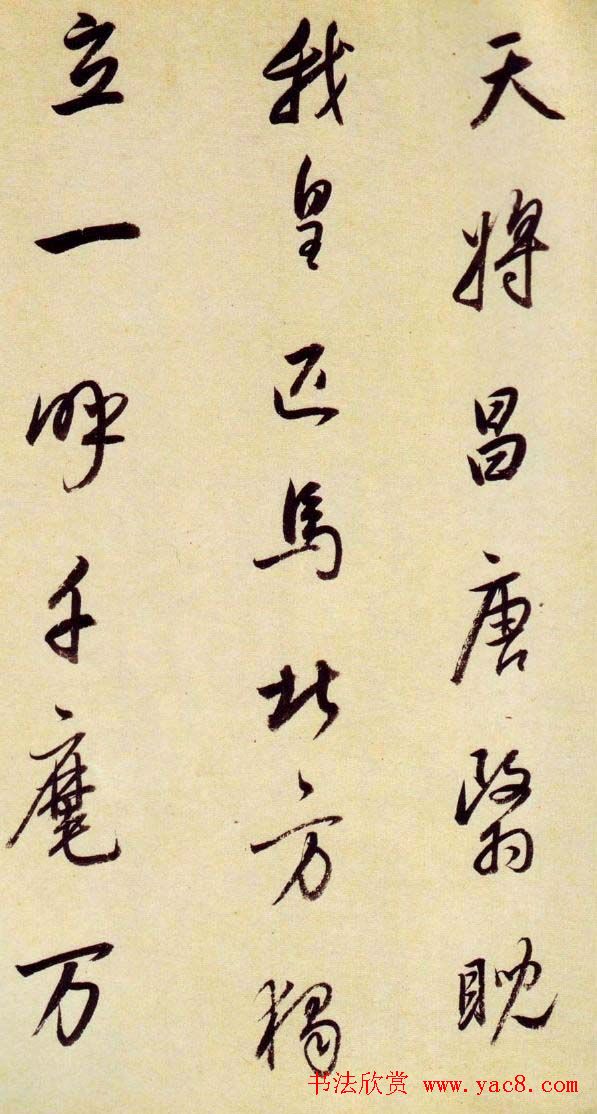 天將昌唐翳睨
我皇匹馬北方獨
立一呼千麾万
书法欣赏 www.yac8.com